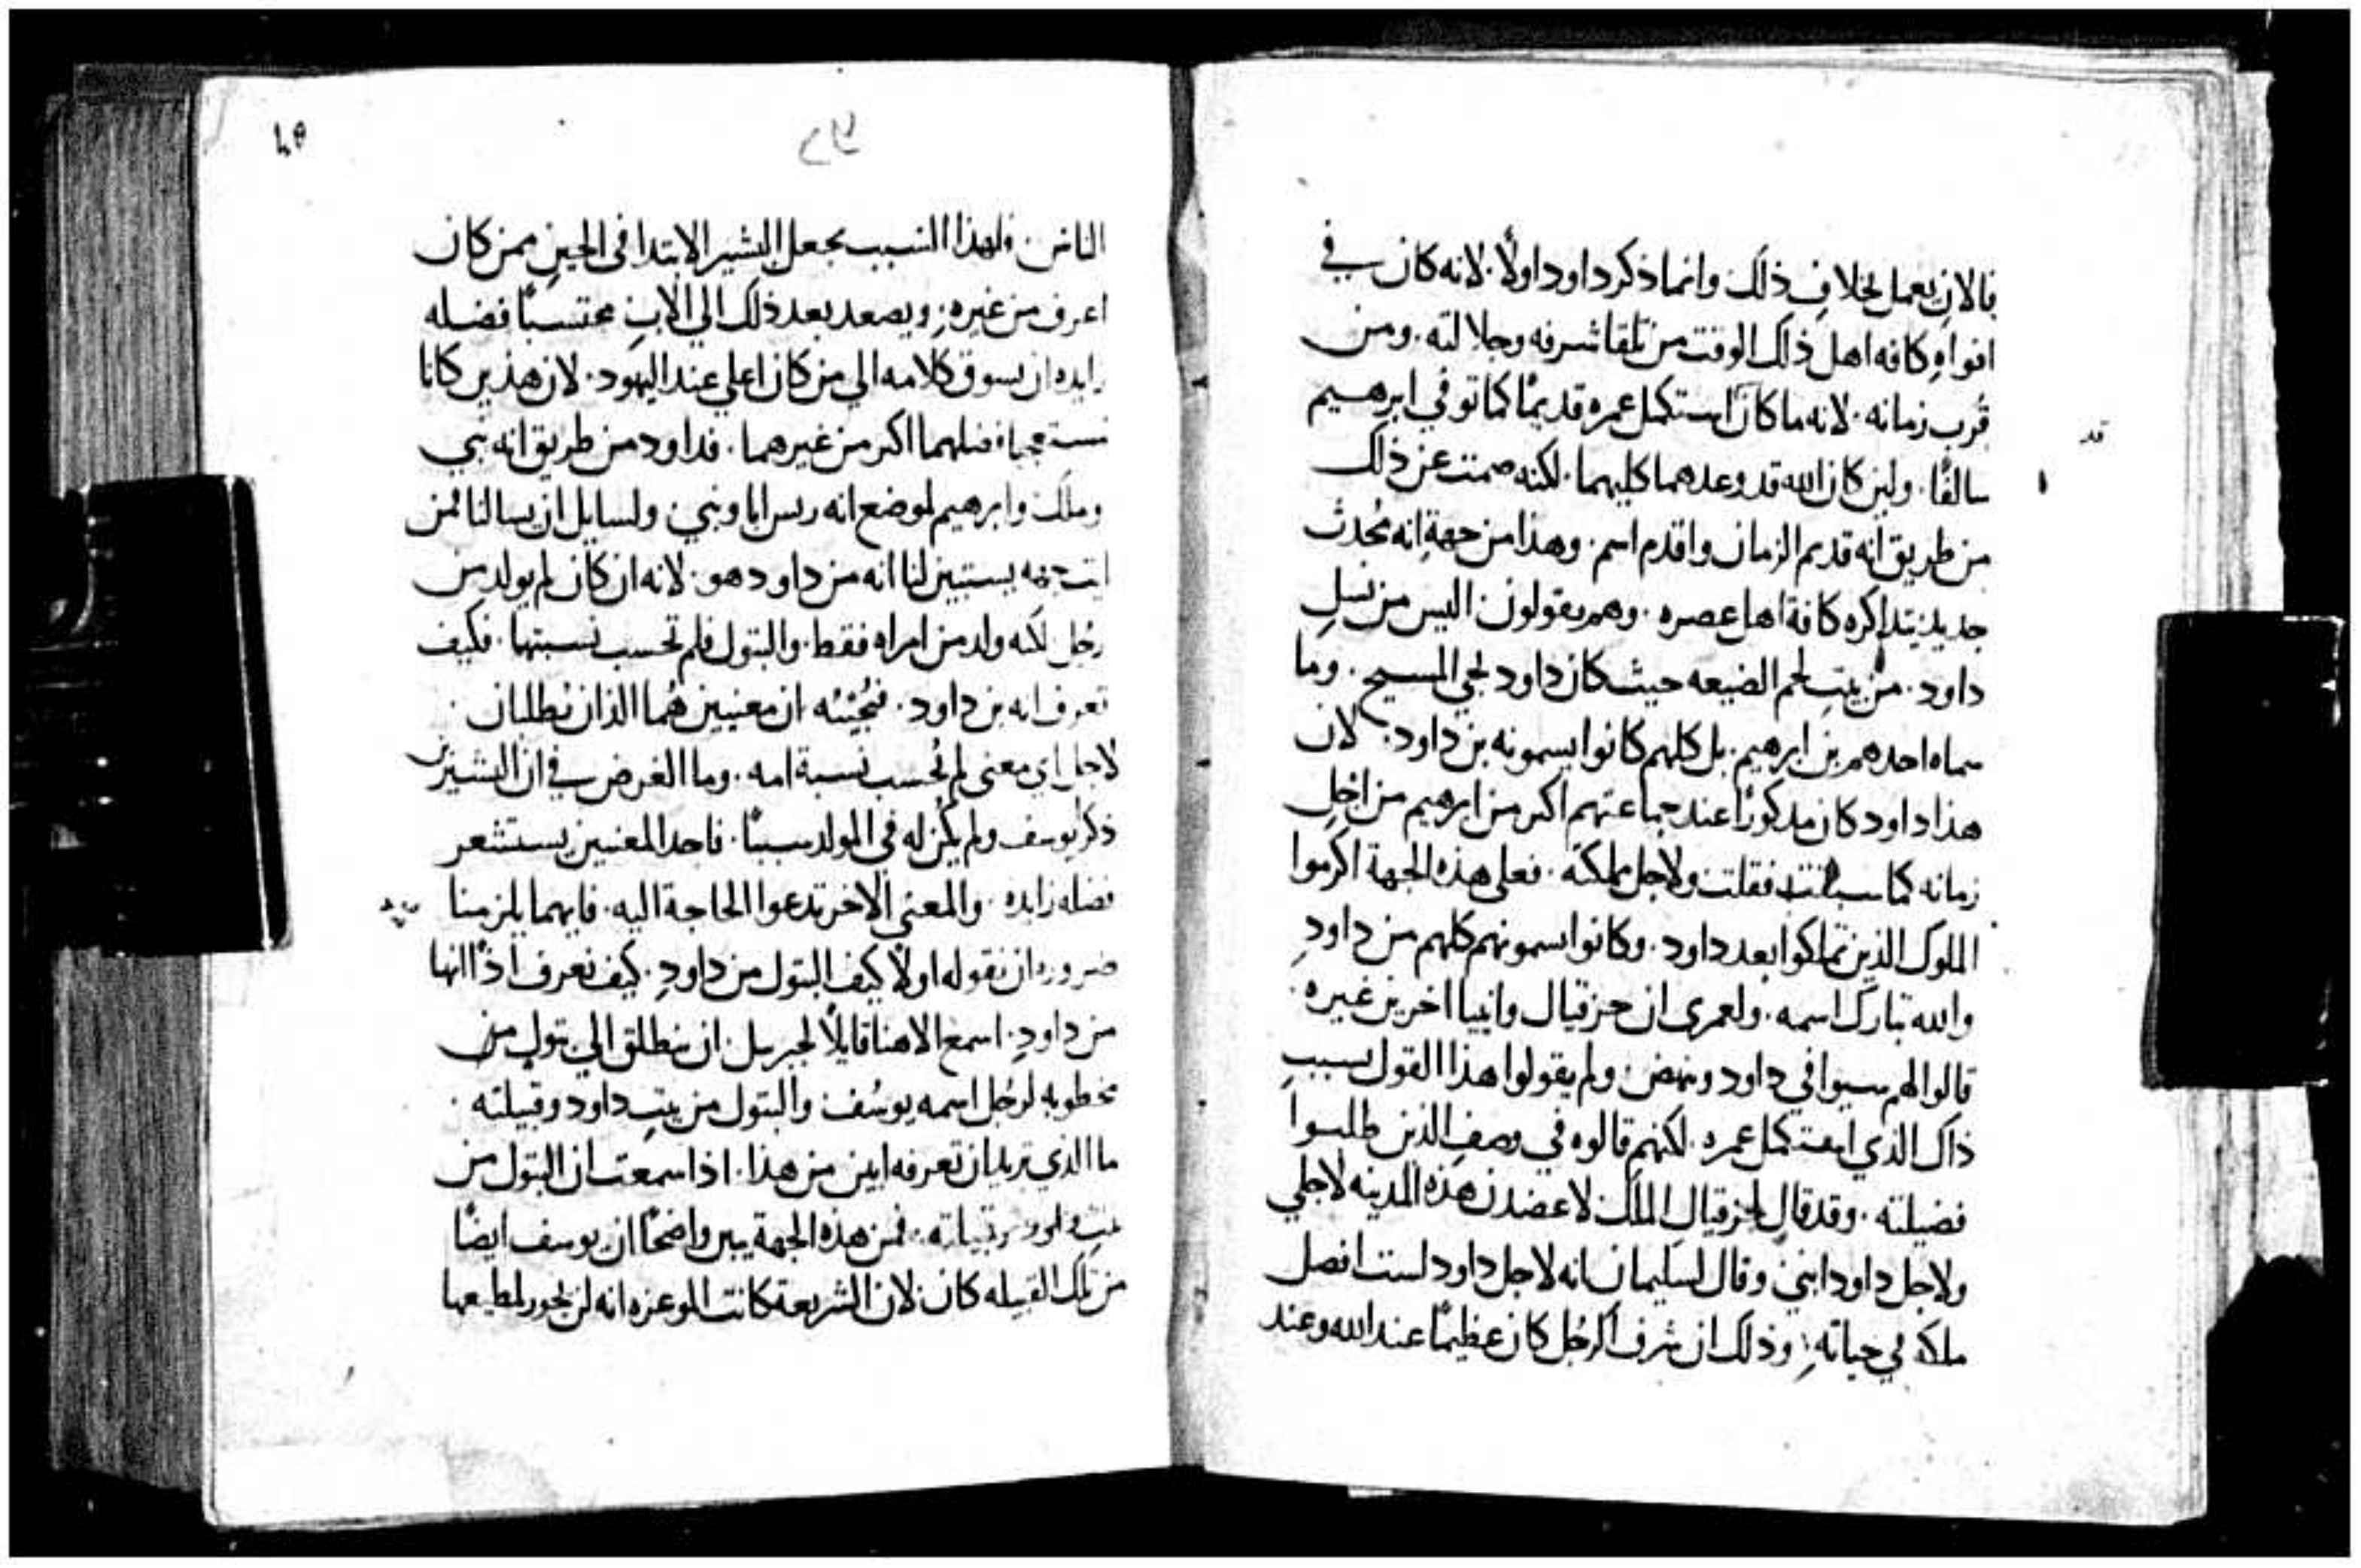 فالان نعمل بخلاف ذلك وانما ذكر داود اولًا. لانه كان في
افواه كافه اهل ذلك الوقت من تلقا شرفه وجلالته. ومن
قُرب زمانه. لانه ما كان استكمل عمره قديمًا كما توفي ابرهيم
قد
سالفًا. ولين كان الله قد وعدهما كليهما. لكنه صمت عن ذلك
من طريق انه قديم الزمان واقدم اسم. وهذا من جهة انه مُحدث
جديد يتداكره كافة اهل عصره. وهم يقولون اليس من نسل
داود. من بيت لحم الضيعه حيث كان داود يجي المسيح. وما
سماه احدهم بن ابرهيم. بل كلهم كانوا يسمونه بن داود. لان
هذا داود كان مدكورًا عند جماعتهم اكثر من ابرهيم من اجل
زمانه كما سبقت فقلت ولاجل مملكته. فعلي هذه الجهة اكرموا
الملوك الذين تملكوا بعد داود. وكانوا يسمونهم كلهم من داود
والله تبارك اسمه. ولعمرى ان حزقيال وانبيا اخرين غيره.
قالوا لهم سيوافي داود وينهض. ولم يقولوا هذا القول بسبب
ذاك الذي استكمل عمره. لكنهم قالوه في وصف الذين طلبوا
فضيلته. وقد قال لحزقيال الملك لاعضدن هذه المدينه لاجلي
ولاجل داود ابني. وقال لسليمان انه لاجل داود لست افصل
ملكه في حياته. وذلك ان شرف الرجُل كان عظيمًا عند الله وعند
الناس. فلهذا السبب يجعل البشير الابتدا في الحين ممن كان
اعرف من غيره. ويصعد بعد ذلك الي الاب محتسبًا فضله
زايده ان يسوق كلامه الي من كان اعلي عند اليهود. لان هذين كانا
اكثر من غيرهما. فداود من طريق انه نبي
وملك وابرهيم لموضع انه ريس ابا ونبي. ولسايل ان يسالنا فمن
ايت جهه يستبين لنا انه من داود هو. لانه ان كان لم يولد من
رجُل لكنه ولد من امراه فقط. والبتول فلم تحسب نسبتها. فكيف
نعرف انه بن داود. فنُجيبُه ان معنيين هُما اللذان نطلبان.
لاجل اي معني لم تُحسب نسبة امه. وما الغرض في ان البشيرين
ذكر يوسف ولم يكن له في المولد سببًا. فاحد المعنيين يستشعر
فضله زايده. والمعني الاخر تدعوا الحاجة اليه. فايهما يلزمنا
ضروره ان نقوله اولًا كيف البتول من داود. كيف نعرف اذًا انها
من داود. اسمع الاهنا قايلًا لجبريل. ان ينطلق الي بتول من
مخطوبه لرجُل اسمه يوسُف والبتول من بيت داود وقبيلته.
ما الذي تريد ان تعرفه ابين من هذا. اذا سمعت ان البتول من
بيت داود وقبيلته. فمن هذه الجهة يبين واضحًا ان يوسف ايضًا
من تلك القبيله كان. لان الشريعة كانت الموعزه انه لن يجوز